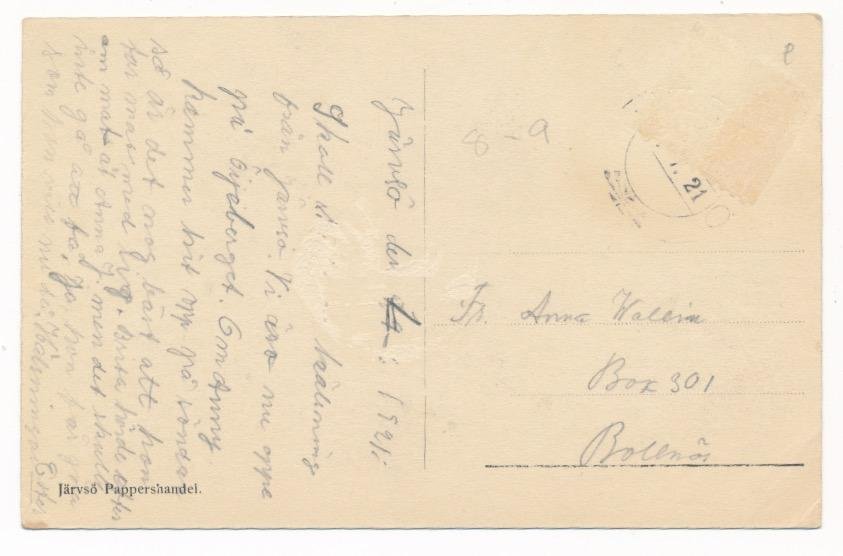 Järvsö den 1921.
Skall vi hälsning
från Järvsö. Vi äro nu oppe
på Öjeberget. Om Anny
kommer hit opp på sönda
så är det nog bäst att hon
tar mat med sig. Brita hörde efter
om mat åt Anna J men det skulle
inte gå att få. Ja hon får göra
som hon vill med det. Hälsningar
Ester
Järvsö Pappershandel.
8 - 9
21
Fr. Anna Wallin
Box 301
Bollnäs